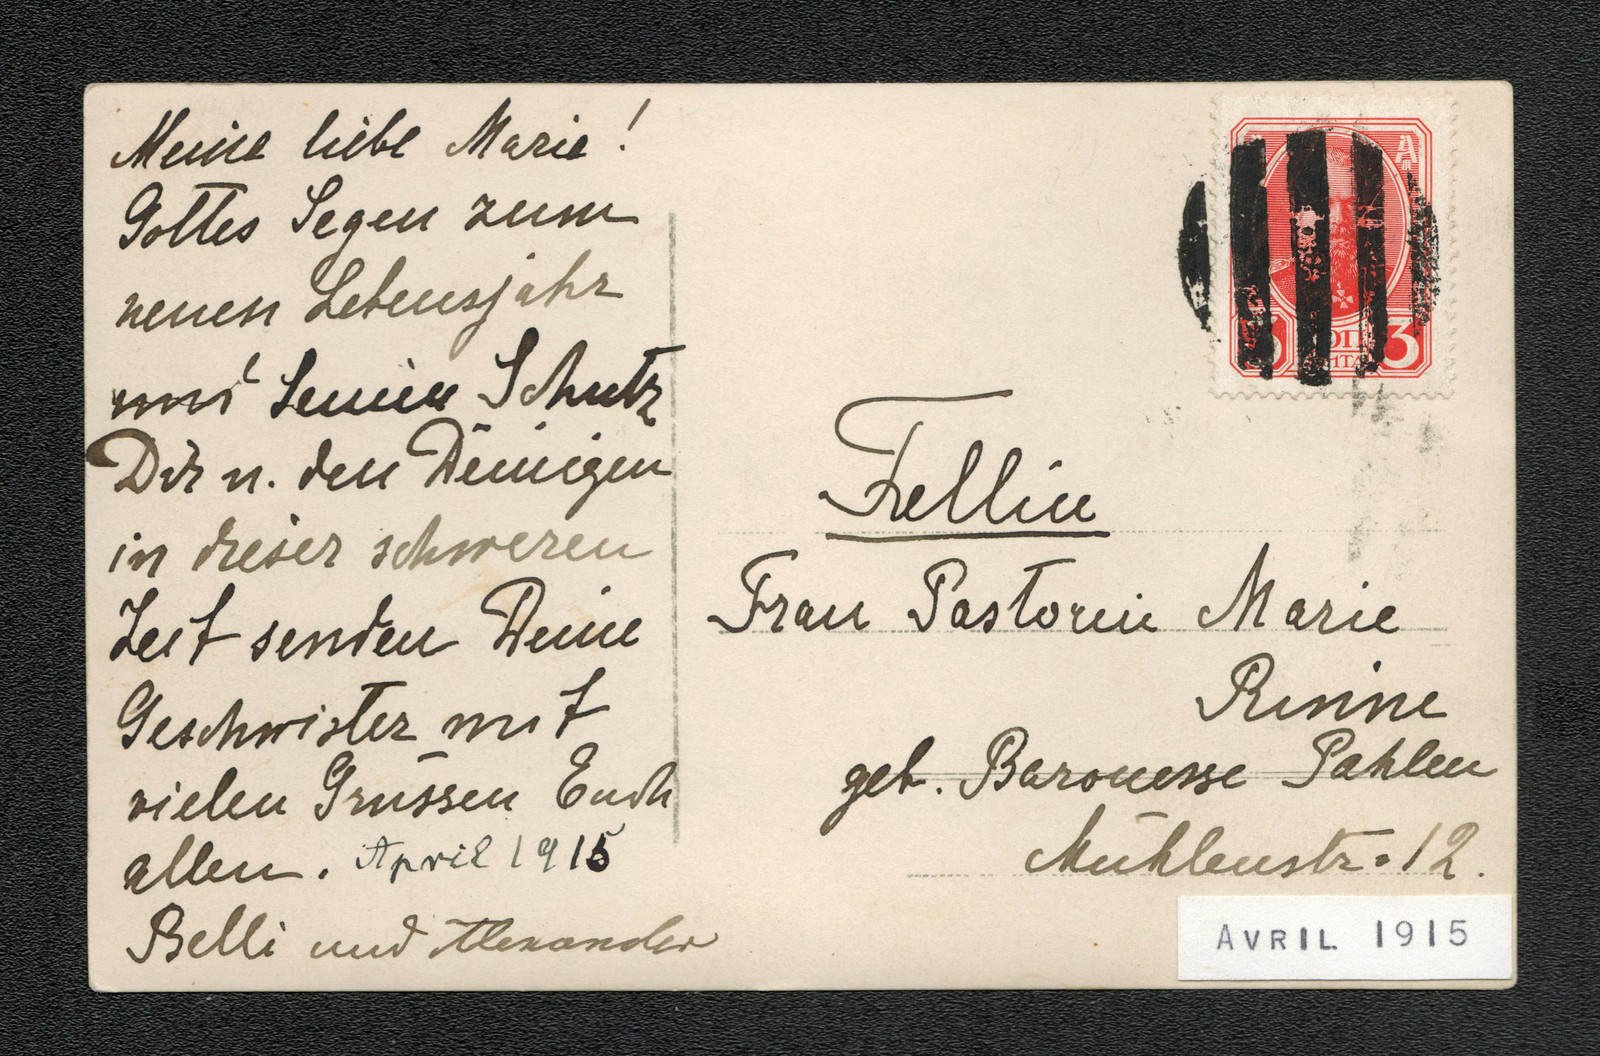 Meine liebe Marie!
Gottes Segen zum
neuen Lebensjahr
und Seinen Schutz
Dir u. den Deinigen
in dieser schweren
Zeit senden Deine
Geschwister mit
vielen Grüssen Euch
allen. April 1915
Belli und Alexander
3
Fellin
Frau Pastorin Marie
Rinne
geb. Baronesse Pahlen
Mühlenstr. 12.
AVRIL 1915